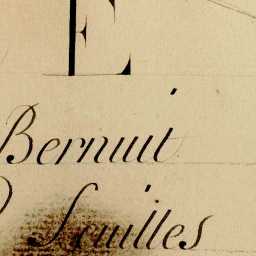 E
Bernuit
Feuilles